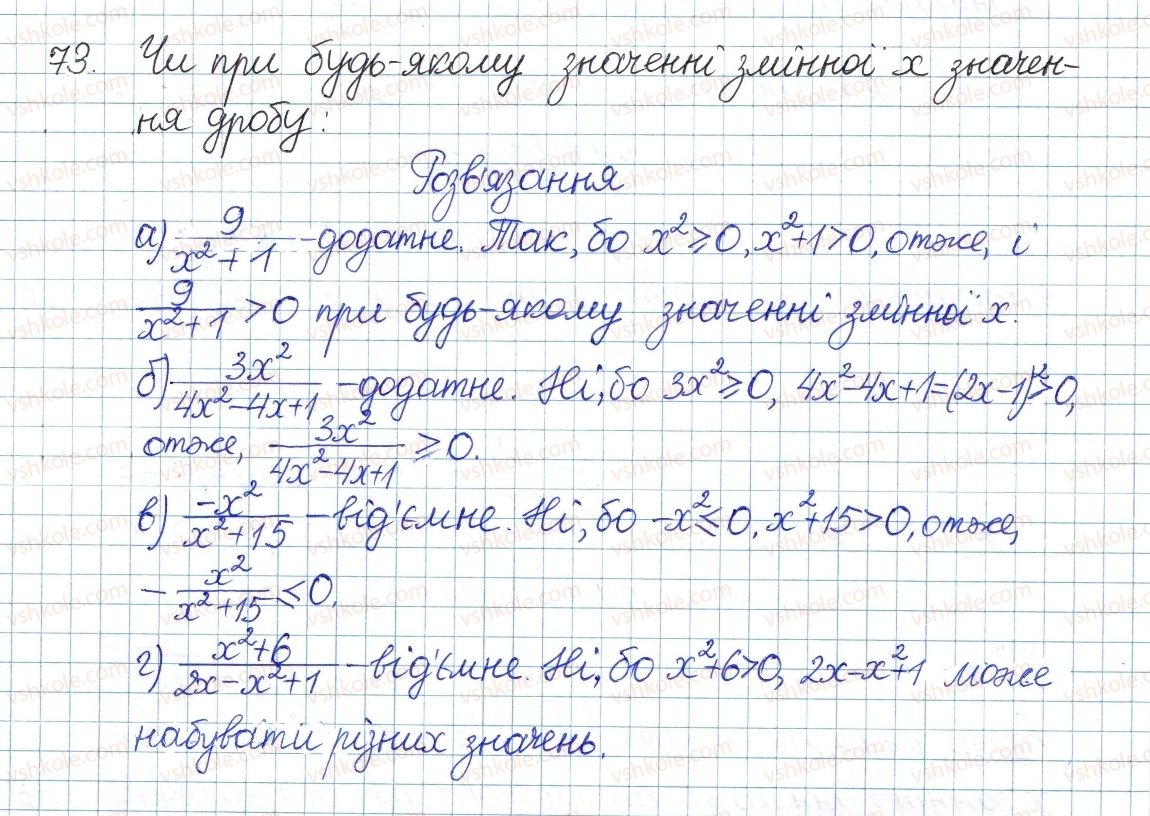 73. Чи при будь-якому значенні змінної x значен-
ня дробу:
Розв'язання
а) 9/(x²+1) - додатне. Так, бо x²≥0, x²+1>0, отже, і
9/(x²+1) > 0 при будь-якому значенні змінної x.
б) 3x²/(4x²-4x+1) - додатне. Ні, бо 3x²≥0, 4x²-4x+1=(2x-1)²>0,
отже, 3x²/(4x²-4x+1) ≥ 0.
в) -x²/(x²+15) - від'ємне. Ні, бо -x²≤0, x²+15>0, отже,
- x²/(x²+15) ≤ 0.
г) (x²+6)/(2x-x²+1) - від'ємне. Ні, бо x²+6>0, 2x-x²+1 може
набувати різних значень.